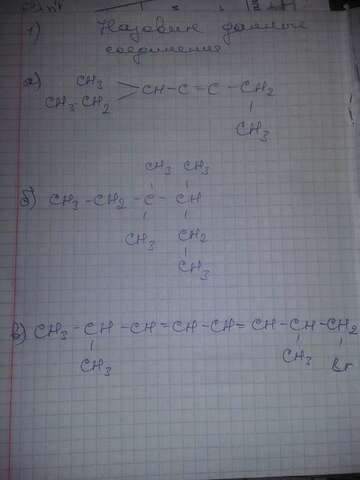 1) Назовите данные
соединения
а) CH3
CH3-CH2 > CH - C = C - CH2
CH3
CH3 CH3
б) CH3 - CH2 - C - CH
CH3 CH2
CH3
в) CH3 - CH - CH = CH - CH = CH - CH - CH2
CH3 CH3 Br